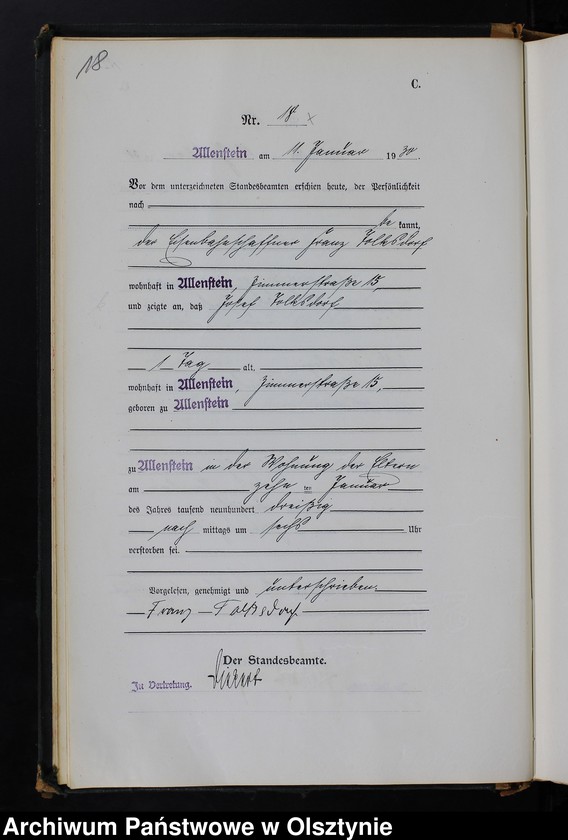 18
C.
Nr. 18
Allenstein am 11. Januar 1930.
Vor dem unterzeichneten Standesbeamten erschien heute, der Persönlichkeit
nach
be kannt,
der Eisenbahnschaffner Franz Tolksdorf
wohnhaft in Allenstein, Zimmerstraße 15,
und zeigte an, daß Josef Tolksdorf
1 Tag alt,
wohnhaft in Allenstein, Zimmerstraße 15,
geboren zu Allenstein
zu Allenstein in der Wohnung der Eltern
am zehn ten Januar
des Jahres tausend neunhundert dreißig
nach mittags um sechs Uhr
verstorben sei.
Vorgelesen, genehmigt und unterschrieben
Franz Tolksdorf
Der Standesbeamte.
In Vertretung.
Archiwum Państwowe w Olsztynie